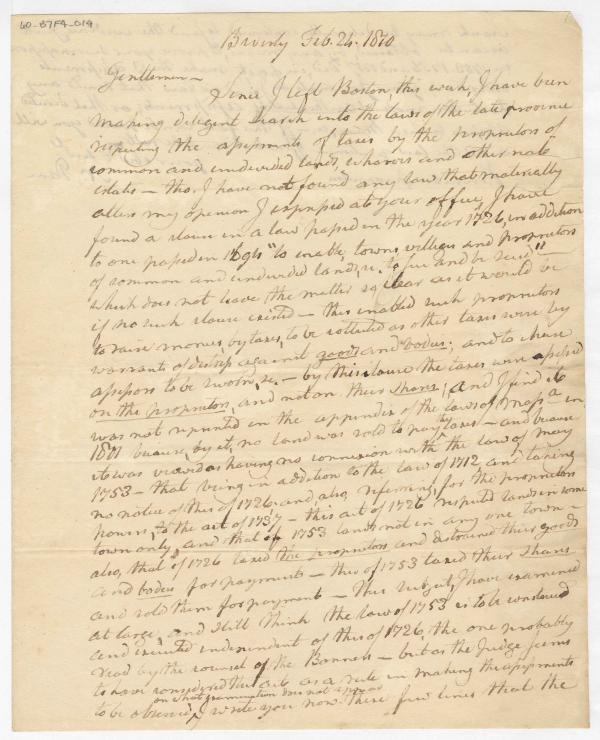 60-87F4-019
Beverly Feb. 24. 1810
Gentlemen—
Since I left Boston, this week, I have been
making diligent search into the laws of the late province
respecting the assessments of taxes by the proprietors of
common and undivided lands, wharves and other real
estates — tho, I have not found any law that materially
alters my opinion I expressed at your office, I have
found a clause in a law passed in the year 1726, in addition
to one passed in "to enable towns, villages and proprietors
of common and undivided lands, &c. to sue and be sued"—
which does not leave the matter so clear as it would be
if no such clause existed — this enabled such proprietors
to raise monies by taxes, to be collected as other taxes were by
warrants of distress against goods and bodies; and to chuse
assessors to be sworn, &c. — by this clause the taxes were assessed
on the proprietors, and not on their shares; and I find it
was not reprinted in the appendix of the laws of Massa in
1801 because, by it, no land was sold to pay the taxes — and because
it was viewed as having no connexion with the law of May
1753 — that being in addition to the law of 1712 and taking
no notice of this of 1726, and also, referring, for the proprietors
powers, to the act of 1737 — this act of 1726 respected lands in some
town only, and that of 1753 lands not in any one town —
also, that of 1726 taxed the proprietors and distrained their goods
and bodies for payments — this of 1753 taxed their shares
and sold them for payment — This subject I have examined
at large, and still think the law of 1753 is to be construed
and executed independent of this of 1726, the one probably
read by the counsel of the — but as the Judge seems
to have considered this act as a rule in making the assessments
on what examination does not appear
to be observed, I write you now these few lines that the